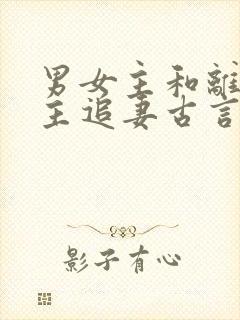 男女主和離
主追妻古言
影子有心